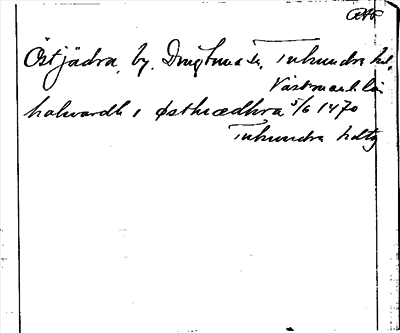 Östjädra, by. Dingtuna sn, Tuhundra hd,
Västmanl. län
halvardh i østhiædhra 5/6 1470
Tuhundra hdtg